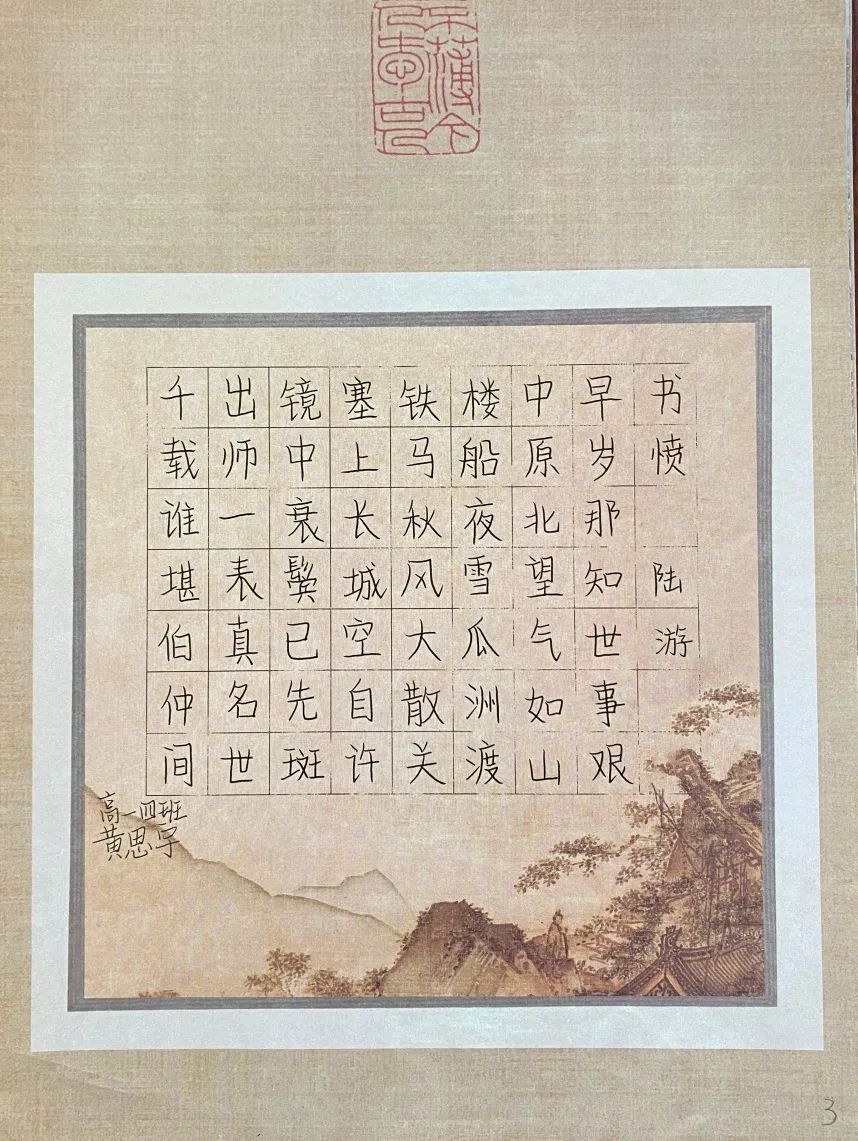 书愤 陆游
早岁那知世事艰
中原北望气如山
楼船夜雪瓜洲渡
铁马秋风大散关
塞上长城空自许
镜中衰鬓已先斑
出师一表真名世
千载谁堪伯仲间
高一四班
黄思
3